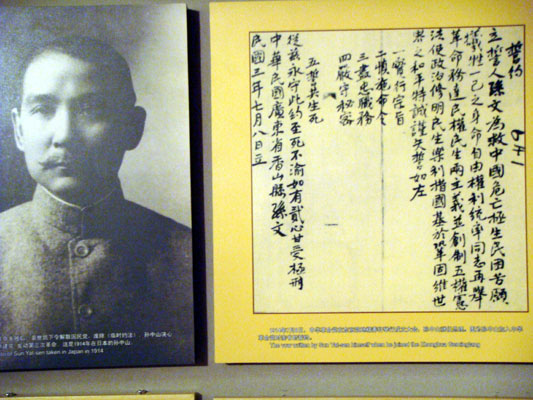 誓約
立誓人孫文為救中國危亡拯生民困苦願
犧牲一己之身命自由權利統率同志再舉
革命務達民權民生兩主義並創制五權憲
法使政治修明民生樂利措國基於鞏固維世
界之和平特誠謹矢誓如左
一實行宗旨
二慎施命令
三盡忠職務
四嚴守秘密
五誓共生死
從茲永守此約至死不渝如有貳心甘受極刑
中華民國廣東省香山縣孫文
民國三年七月八日立
袁世凯下令解散国民党，废除《临时约法》，孙中山决心
发动第三次革命。这是1914年在日本的孙中山
of Sun Yat-sen taken in Japan in 1914
The vow written by Sun Yat-sen himself when he joined the Zhonghua Gemingdang